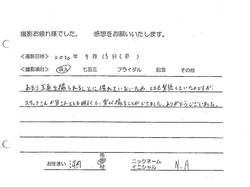 撮影お疲れ様でした。 感想をお願いいたします。
<撮影日時> 2020 年 9 月 13 日 (日)
<撮影項目> 成人 七五三 ブライダル 記念 その他
あまり写真を撮られることに慣れていないため、とても緊張していたのですが
スタッフさんが皆とても明るくて、楽しく撮ることができました。ありがとうございました。
お住まい 市 ニックネーム イニシャル N.A